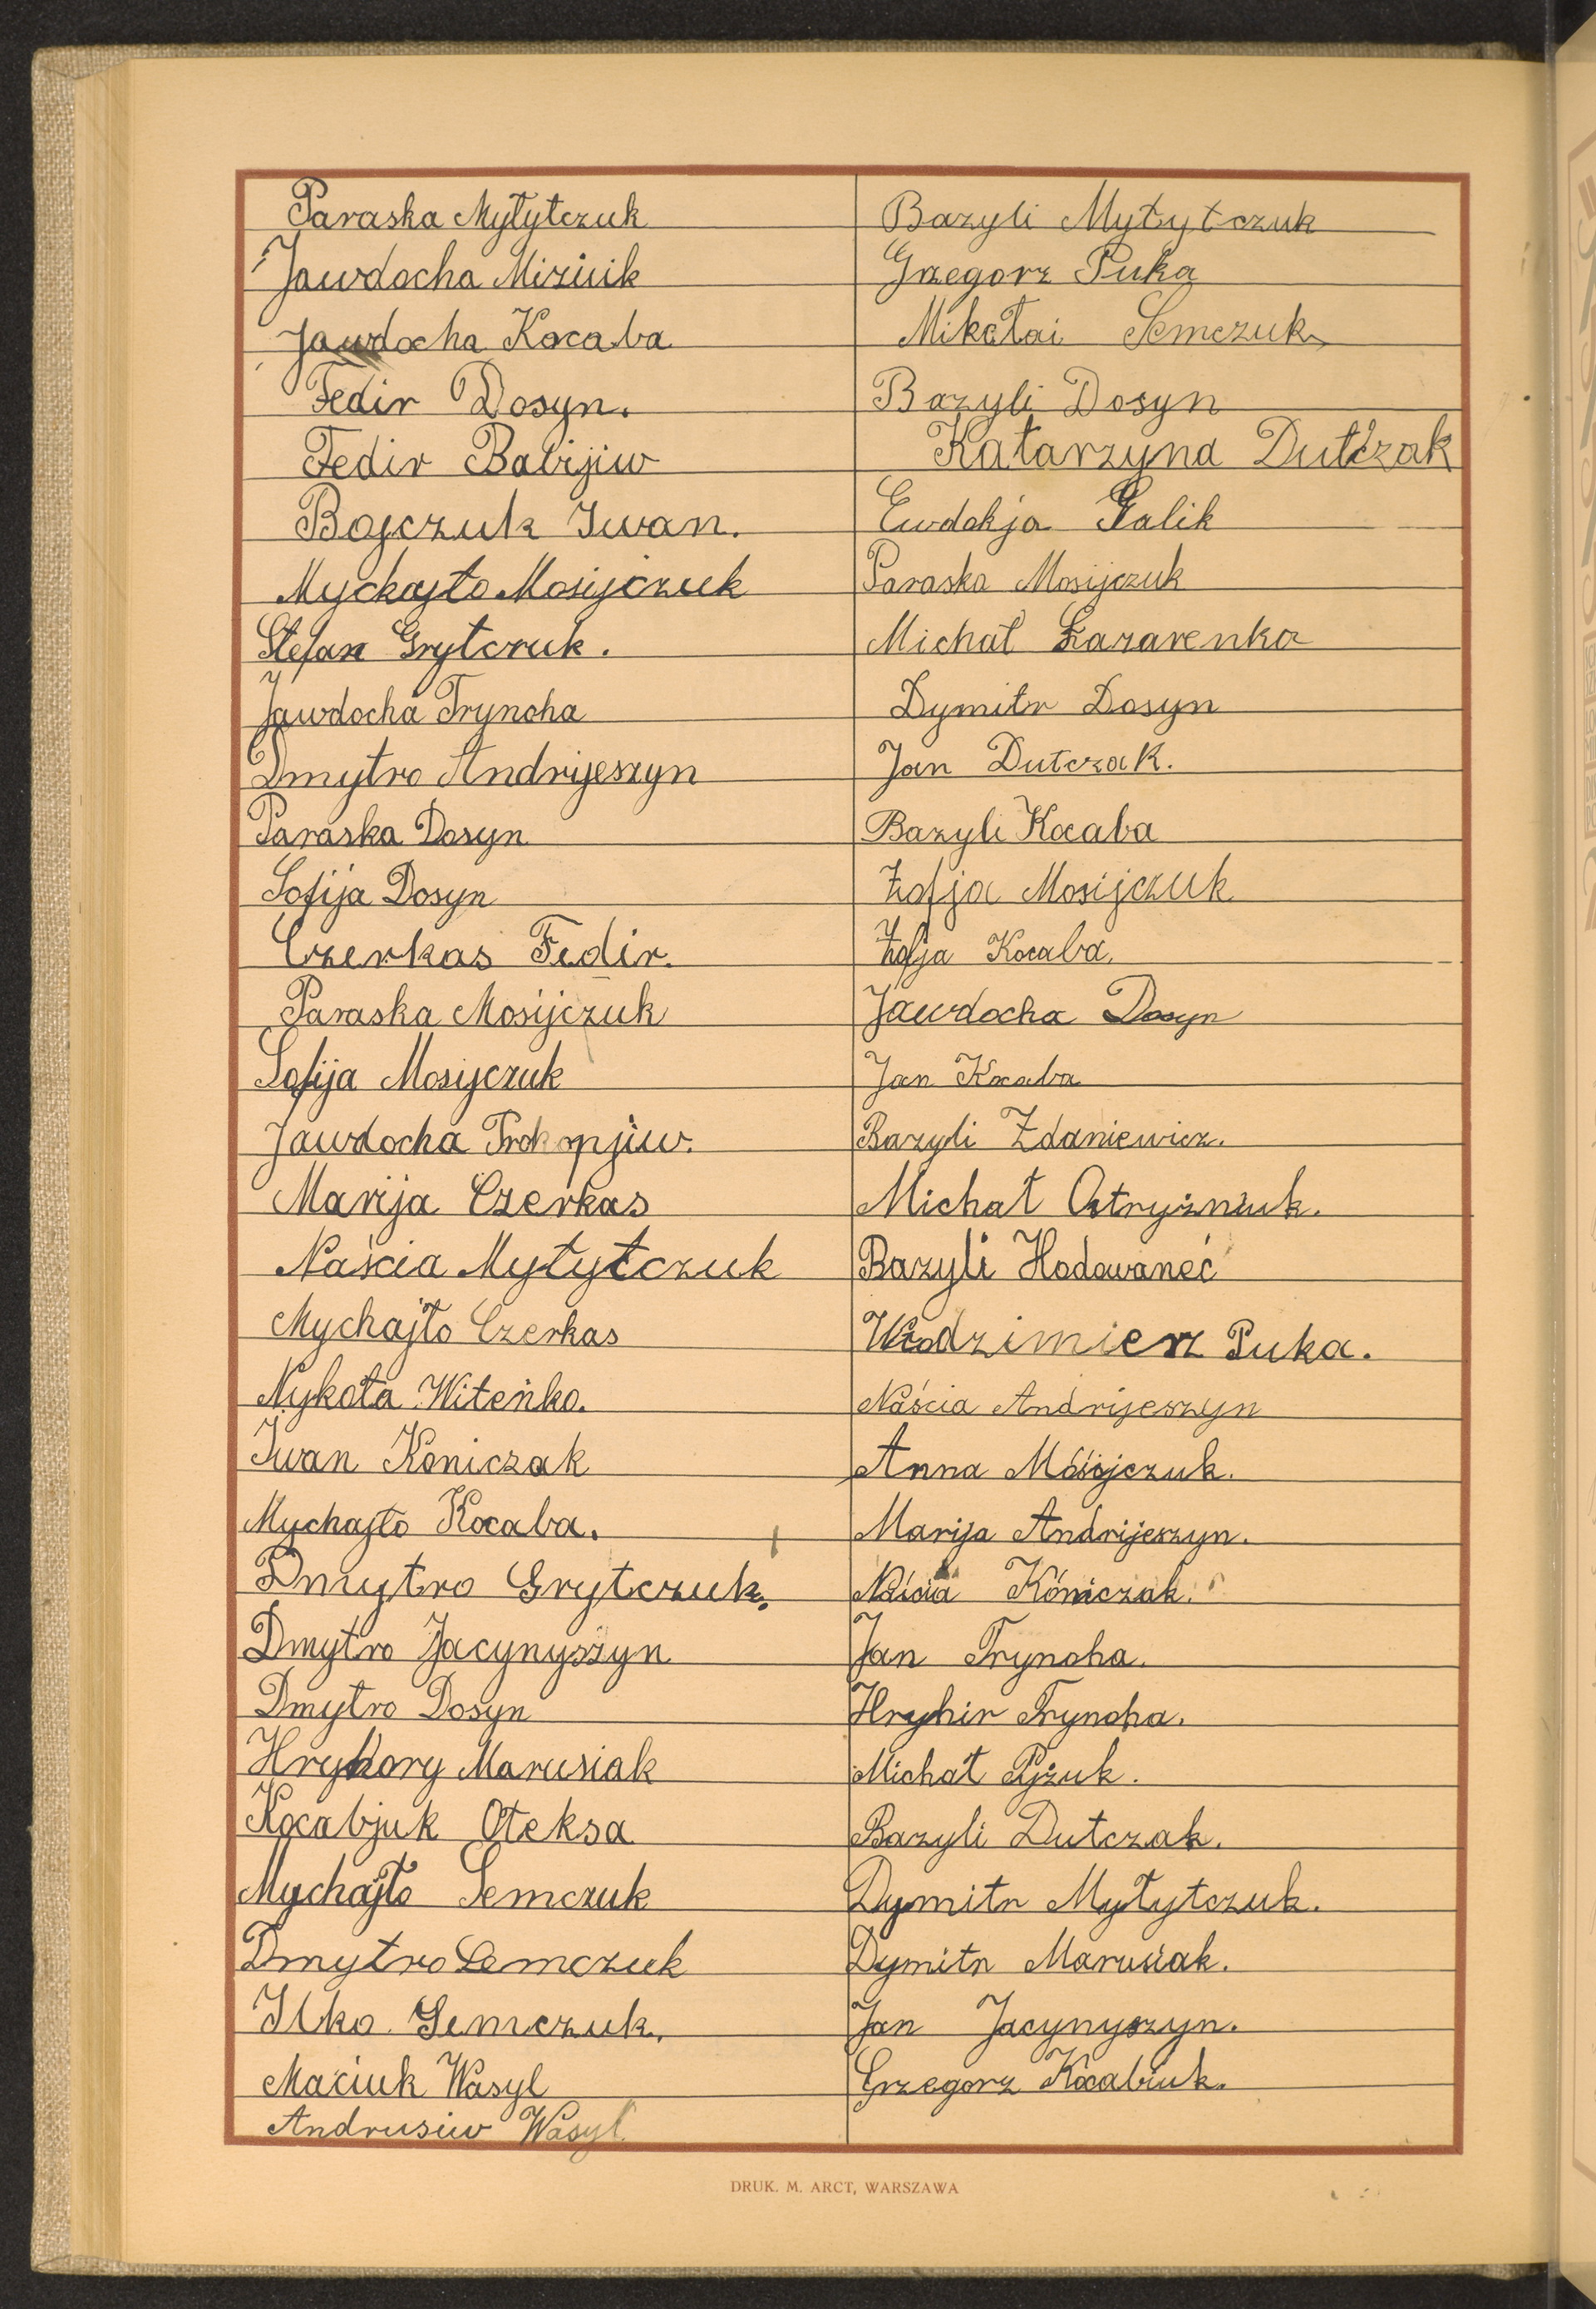 Paraska Myłytczuk
Jawdocha Miziuik
Jawdocha Kocaba
Fedir Dosyn.
Fedir Babijiw
Bojczuk Iwan.
Myckajło Mosijczuk
Stefan Grytczuk.
Jawdocha Tryncha
Dmytro Andrijeszyn
Paraska Dosyn
Sofija Dosyn
Czerkas Fedir.
Paraska Mosijczuk
Sofija Mosijczuk
Jawdocha Prokopjiw.
Marija Czerkas
Naścia Mytytczuk
Mychajło Czerkas
Nykoła Witeńko.
Iwan Koniczak
Mychajło Kocaba.
Dmytro Grytczuk.
Dmytro Jacynyszyn
Dmytro Dosyn
Hryhory Marusiak
Kocabjuk Ołeksa
Mychajło Semczuk
Dmytro Semczuk
Ilko Semczuk.
Maciuk Wasyl
Andrusiw Wasyl.
Bazyli Mytytczuk
Grzegorz Puka
Mikołai Semczuk
Bazyli Dosyn
Katarzyna Dutczak
Ewdokja Galik
Paraska Mosijczuk
Michał Łazarenko
Dymitr Dosyn
Jan Dutczak.
Bazyli Kocaba
Zofja Mosijczuk
Zofja Kocaba.
Jawdocha Dosyn
Jan Kocaba
Bazyli Zdaniewicz.
Michał Ostryżniuk.
Bazyli Hodowaneć
Włodzimierz Puka.
Naścia Andrijeszyn
Anna Mosijczuk.
Marija Andrijeszyn.
Naścia Koniczak.
Jan Tryncha.
Hryhir Tryncha.
Michał Pyżuk.
Bazyli Dutczak.
Dymitr Mytytczuk.
Dymitr Marusiak.
Jan Jacynyszyn.
Grzegorz Kocabiuk.
DRUK. M. ARCT, WARSZAWA